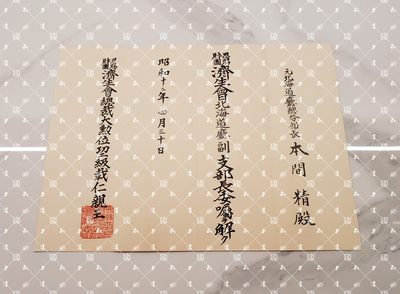 元北海道廳總務部長
本間精殿
恩賜財團濟生會北海道廳副支部長委囑ヲ解ク
昭和十二年四月三十日
恩賜財團濟生會總裁大勳位功三級載仁親王